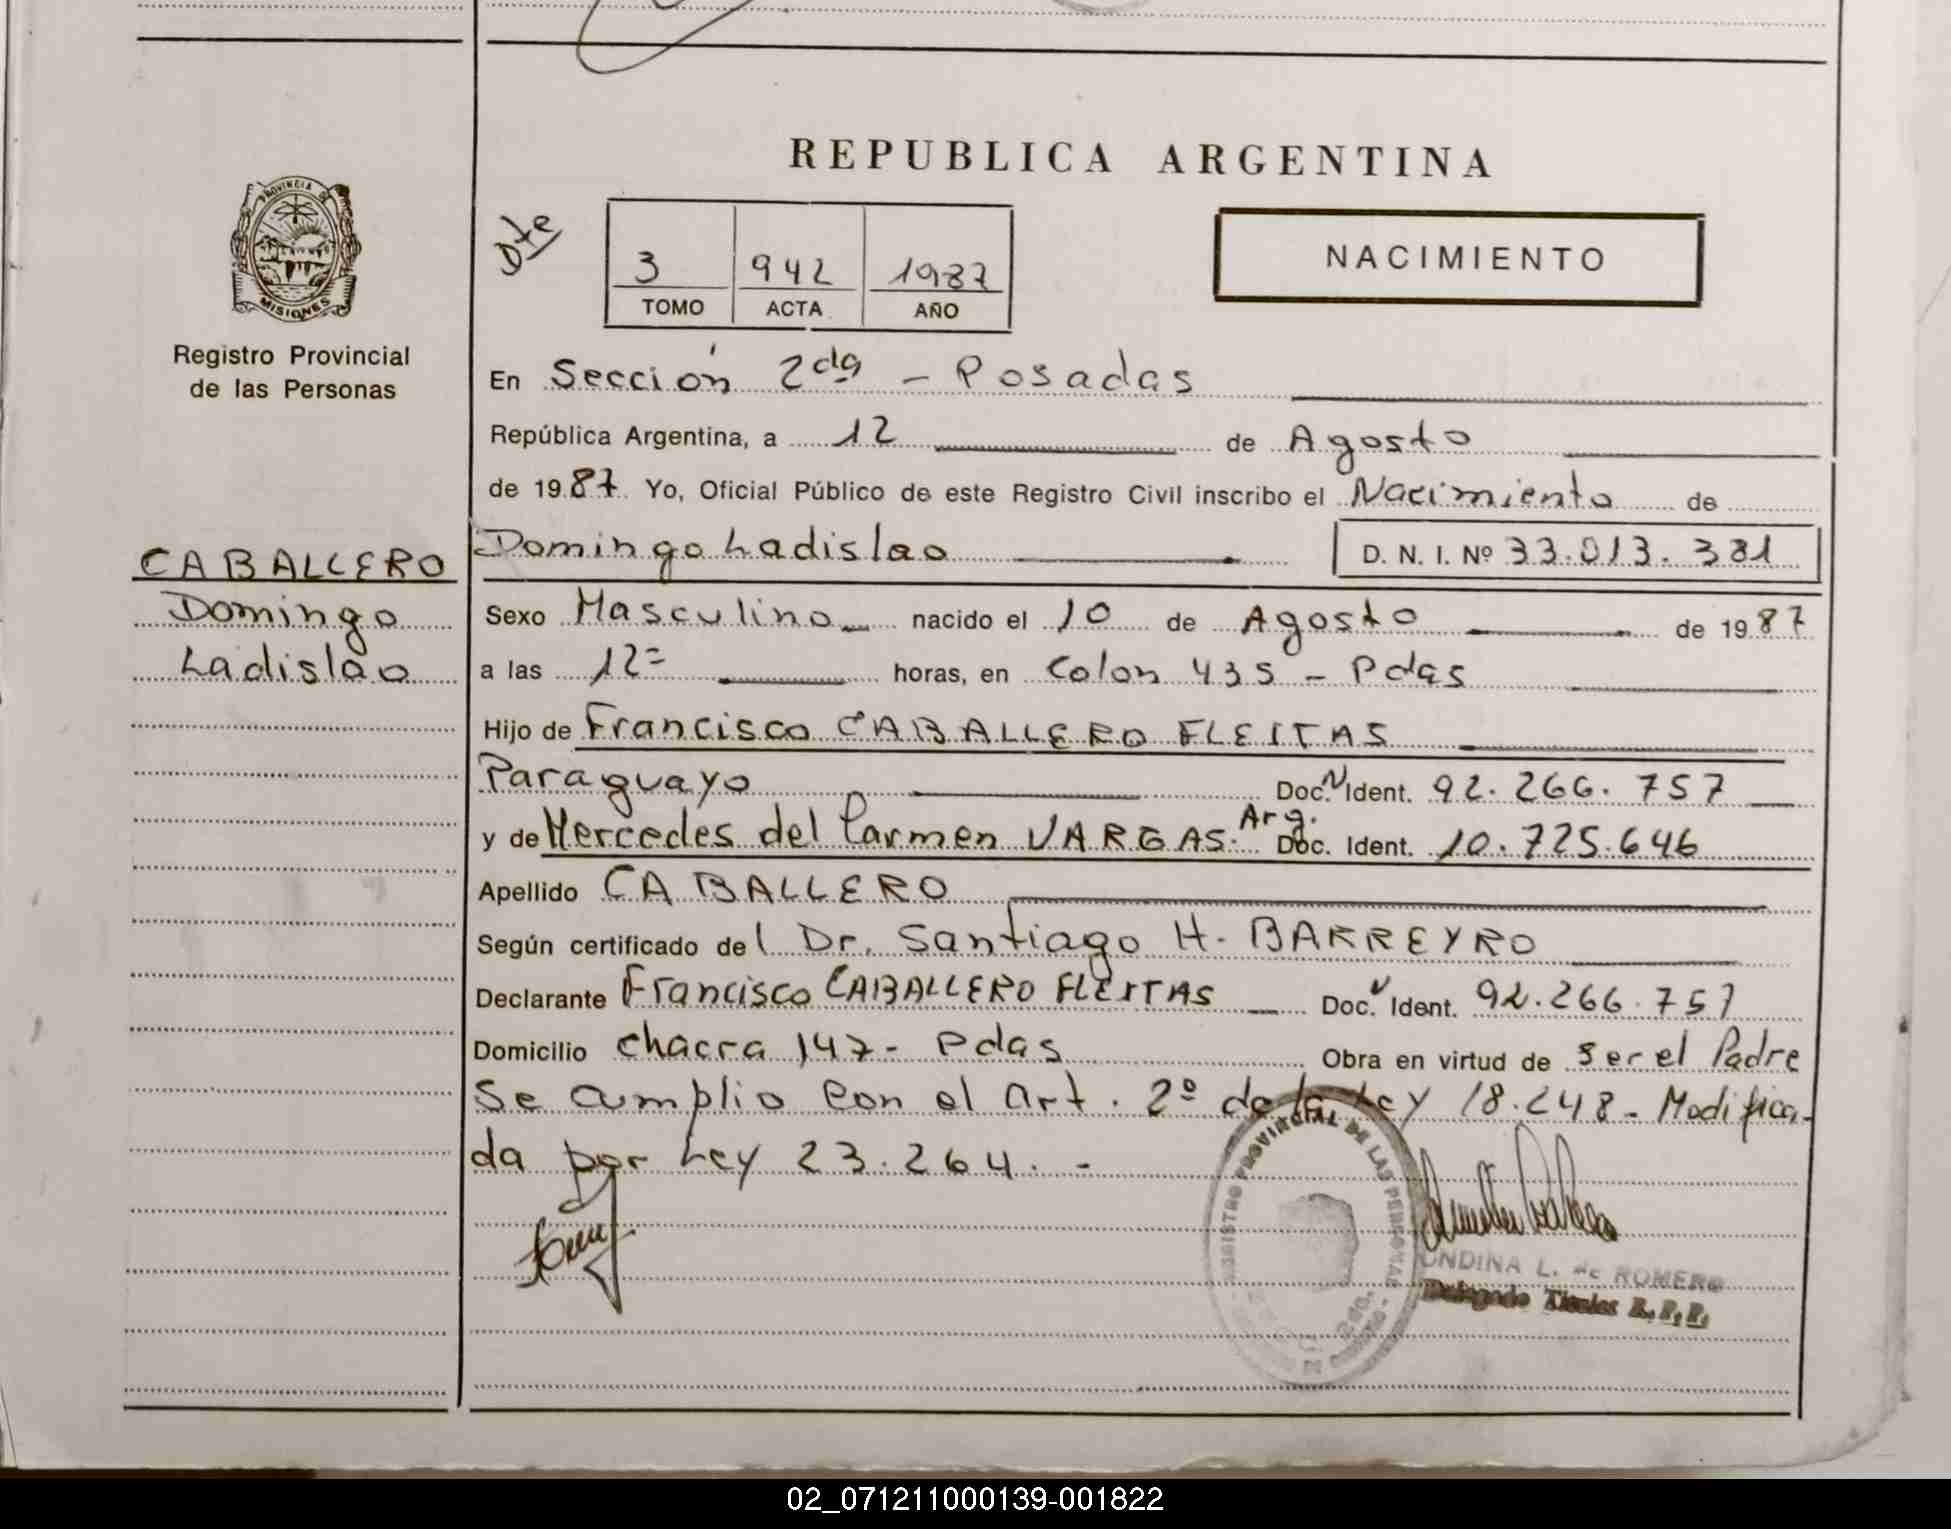 REPUBLICA ARGENTINA
PROVINCIA DE
MISIONES
Registro Provincial
de las Personas
Dte
3 942 1987
TOMO ACTA AÑO
NACIMIENTO
En Sección 2da - Posadas
República Argentina, a 12 de Agosto
de 1987 Yo, Oficial Público de este Registro Civil inscribo el Nacimiento de
CABALLERO
Domingo
Ladislao
Domingo Ladislao D. N. I. Nº 33.013.381
Sexo Masculino nacido el 10 de Agosto de 1987
a las 12= horas, en Colon 435 - Pdas
Hijo de Francisco CABALLERO FLEITAS
Paraguayo Doc. N Ident. 92.266.757
y de Mercedes del Carmen VARGAS. Arg. Doc. Ident. 10.725.646
Apellido CABALLERO
Según certificado del Dr. Santiago H. BARREYRO
Declarante Francisco CABALLERO FLEITAS Doc. Ident. 92.266.757
Domicilio chacra 147 - Pdas Obra en virtud de ser el Padre
Se cumplio con el art. 2º de la Ley 18.248 - Modifica-
da por Ley 23.264. -
REGISTRO PROVINCIAL DE LAS PERSONAS
UNDINA L. de ROMERO
Delegado Titular R.P.P.
02_071211000139-001822